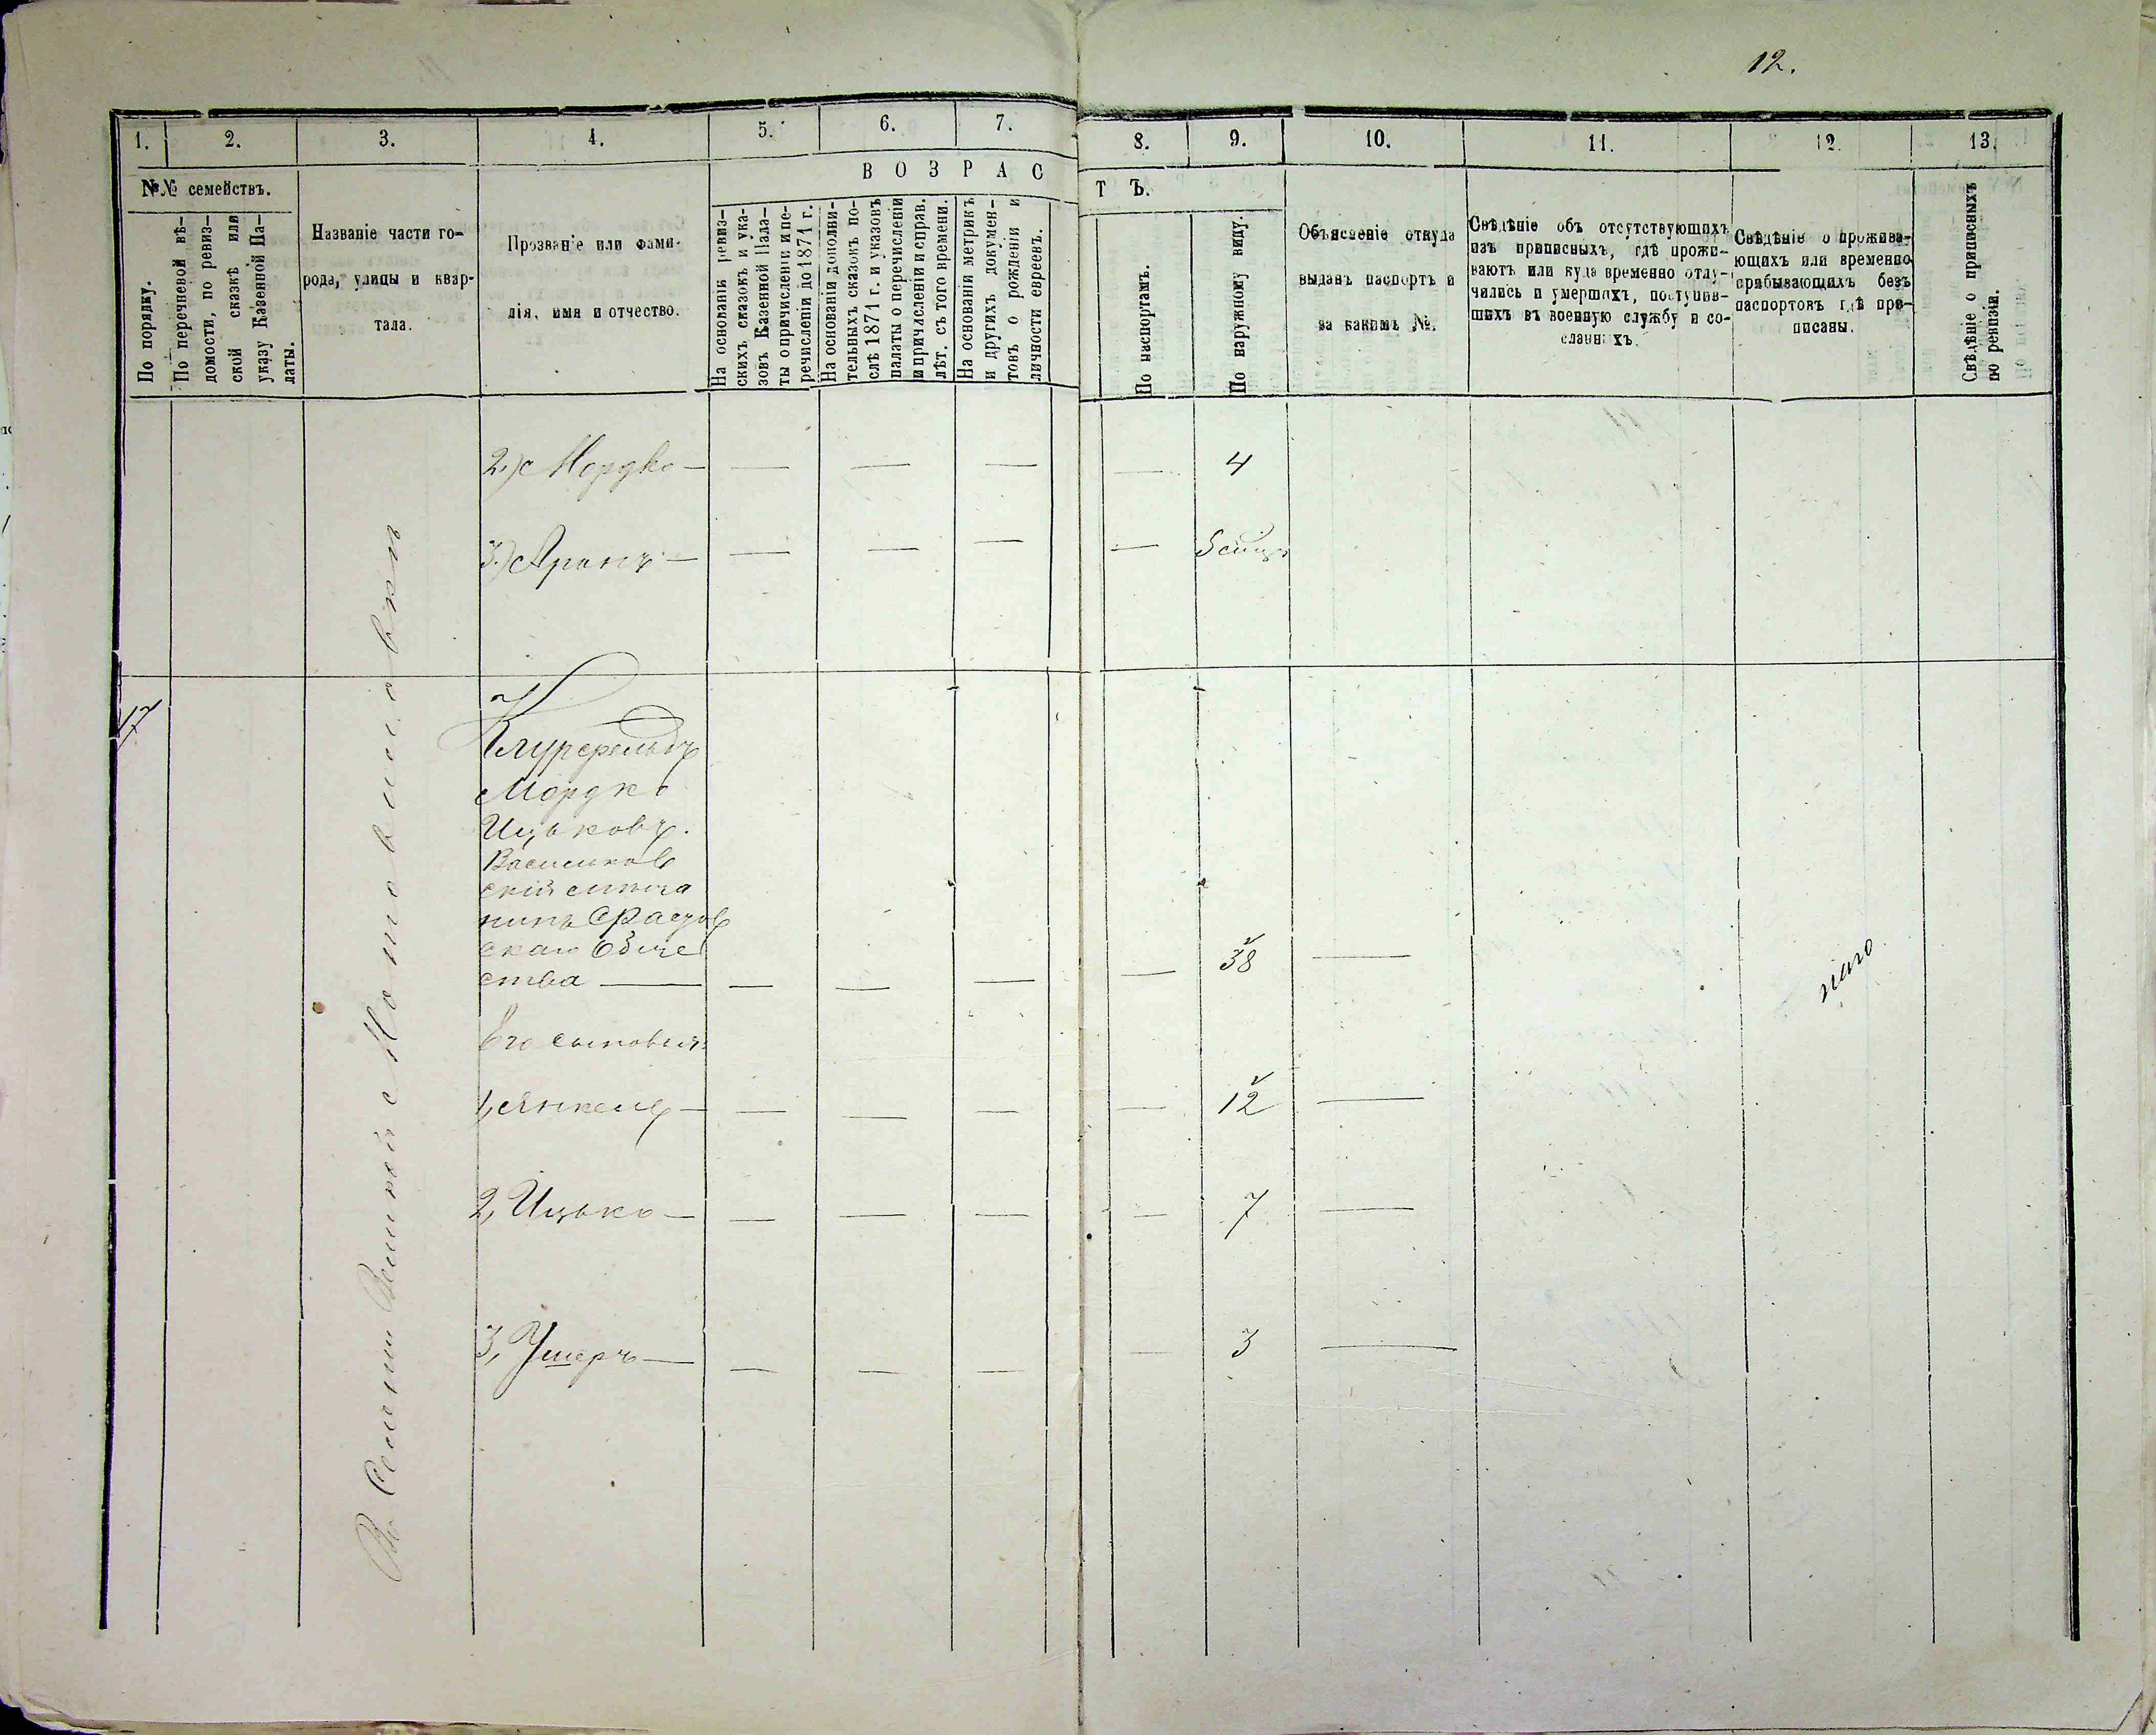 12.
1. 2. 3. 4. 5. 6. 7. 8. 9. 10. 11. 12. 13.
№№ семействъ.
По порядку.
По перечневой вѣ-
домости, по ревиз-
ской сказкѣ или
указу Казенной Па-
латы.
Названіе части го-
рода, улицы и квар-
тала.
Прозваніе или фами-
лія, имя и отчество.
ВОЗРАСТЪ.
На основаніи ревиз-
скихъ сказокъ и ука-
зовъ Казенной Пала-
ты о причисленіи и пе-
речисленіи до 1871 г.
На основаніи дополни-
тельныхъ сказокъ по-
слѣ 1871 г. и указовъ
палаты о перечисленіи
и причисленіи и справ.
лѣт. съ того времени.
На основаніи метрикъ
и другихъ докумен-
товъ о рожденіи и
личности евреевъ.
По паспортамъ.
По наружному виду.
Объясненіе откуда
выданъ паспортъ и
за какимъ №.
Свѣдѣніе объ отсутствующихъ
изъ приписныхъ, гдѣ прожи-
ваютъ или куда временно отлу-
чились и умершихъ, поступив-
шихъ въ военную службу и со-
сланныхъ.
Свѣдѣніе о прожива-
ющихъ или временно
прибывающихъ безъ
паспортовъ гдѣ при-
писаны.
Свѣдѣніе о приписныхъ
по ревизіи.
Въ Селеніи Великой Мотовиловки
2) Мордко — — — — — 4
3) Аронъ — — — — —
17
Мордко
Ицьковъ.
Васильков
скій мѣща
нинъ Фастов
скаго Обще
ства — — — — — 38 —
Его сыновья:
1, Янкель — — — — — 12 —
2, Ицько — — — — — 7 —
3, Ушеръ — — — — — 3 —